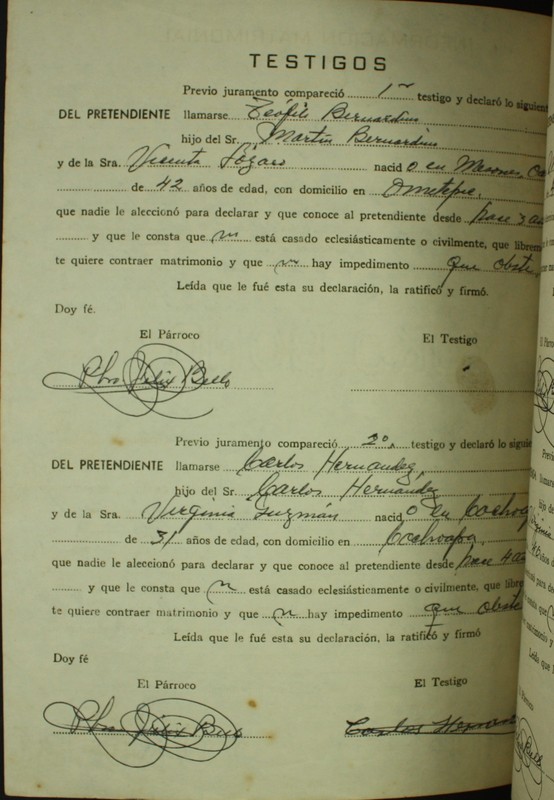 TESTIGOS
Previo juramento compareció 1º testigo y declaró lo siguien
DEL PRETENDIENTE llamarse Teófilo Bernardino
hijo del Sr. Martín Bernardino
y de la Sra. Vicenta Lázaro nacid o en Mesones, Oa
de 42 años de edad, con domicilio en Ometepec,
que nadie le aleccionó para declarar y que conoce al pretendiente desde hace 3 a
y que le consta que no está casado eclesiásticamente o civilmente, que librem
te quiere contraer matrimonio y que no hay impedimento que obste
Leída que le fué esta su declaración, la ratificó y firmó.
Doy fé.
El Párroco El Testigo
Pbro Félix Bello
Previo juramento compareció 2º, testigo y declaró lo siguie
DEL PRETENDIENTE llamarse Carlos Hernandez,
hijo del Sr. Carlos Hernández
y de la Sra. Virginia Guzmán nacid o en Cochoa
de 31 años de edad, con domicilio en Cochoapa,
que nadie le aleccionó para declarar y que conoce al pretendiente desde hace 4 a
y que le consta que n está casado eclesiásticamente o civilmente, que libre
te quiere contraer matrimonio y que n hay impedimento que obste
Leída que le fué esta su declaración, la ratificó y firmó
Doy fé
El Párroco El Testigo
Pbro Félix Bello Carlos Hernan